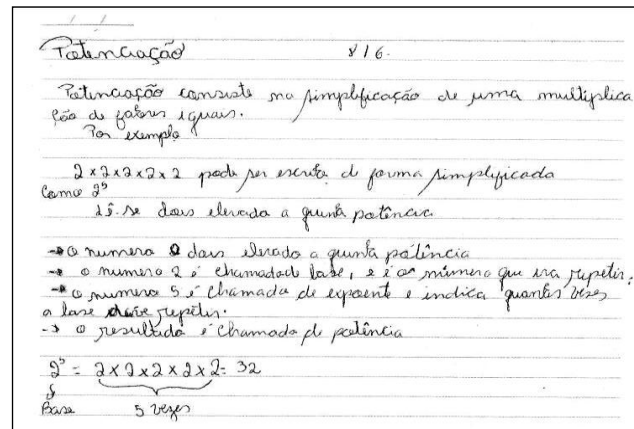 Potenciação 816.
Potenciação consiste na simplificação de uma multiplica
ção de fatores iguais.
Por exemplo
2x2x2x2x2 pode ser escrita de forma simplificada
como 2⁵
lê-se dois elevado a quinta potência
→ o numero dois elevado a quinta potência
→ o numero 2 é chamado de base, e é o número que ira repetir;
→ o numero 5 é chamado de expoente e indica quantas vezes
a base deve repetir.
→ o resultado é chamado de potência
2⁵ = 2 x 2 x 2 x 2 x 2 = 32
Base 5 vezes